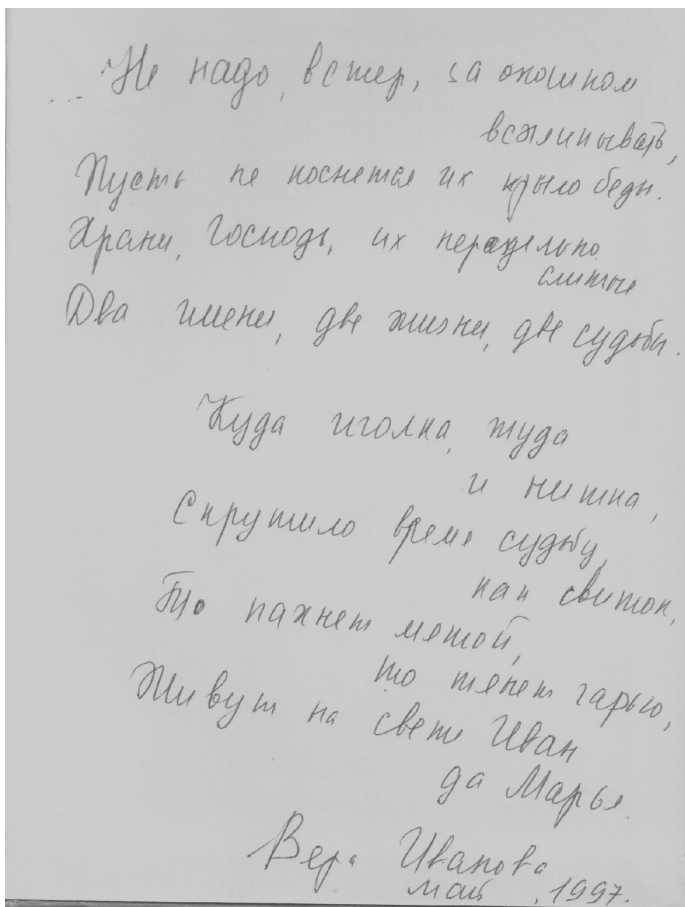 ... Не надо, ветер, за окошком
всхлипывать,
Пусть не коснется их крыло беды.
Храни, Господь, их нераздельно
слитые
Два имени, две жизни, две судьбы.
Куда иголка, туда
и нитка,
Скрутило время судьбу,
как свиток,
То пахнет мятой,
то тянет гарью,
Живут на свете Иван
да Марья.
Вера Иванова
май, 1997.